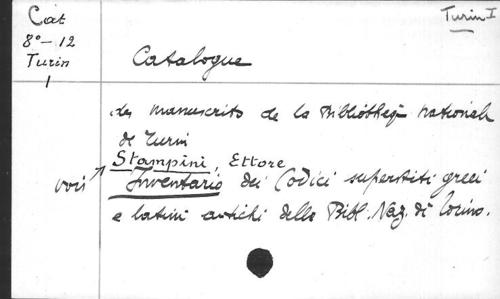 Cat
8°-12
Turin
1
Turin I
Catalogue
des manuscrits de la Bibliothèq nationale
de Turin
Stampini, Ettore
voir Inventario dei Codici superstiti greci
e latini antichi della Bibl. Naz. di Torino.